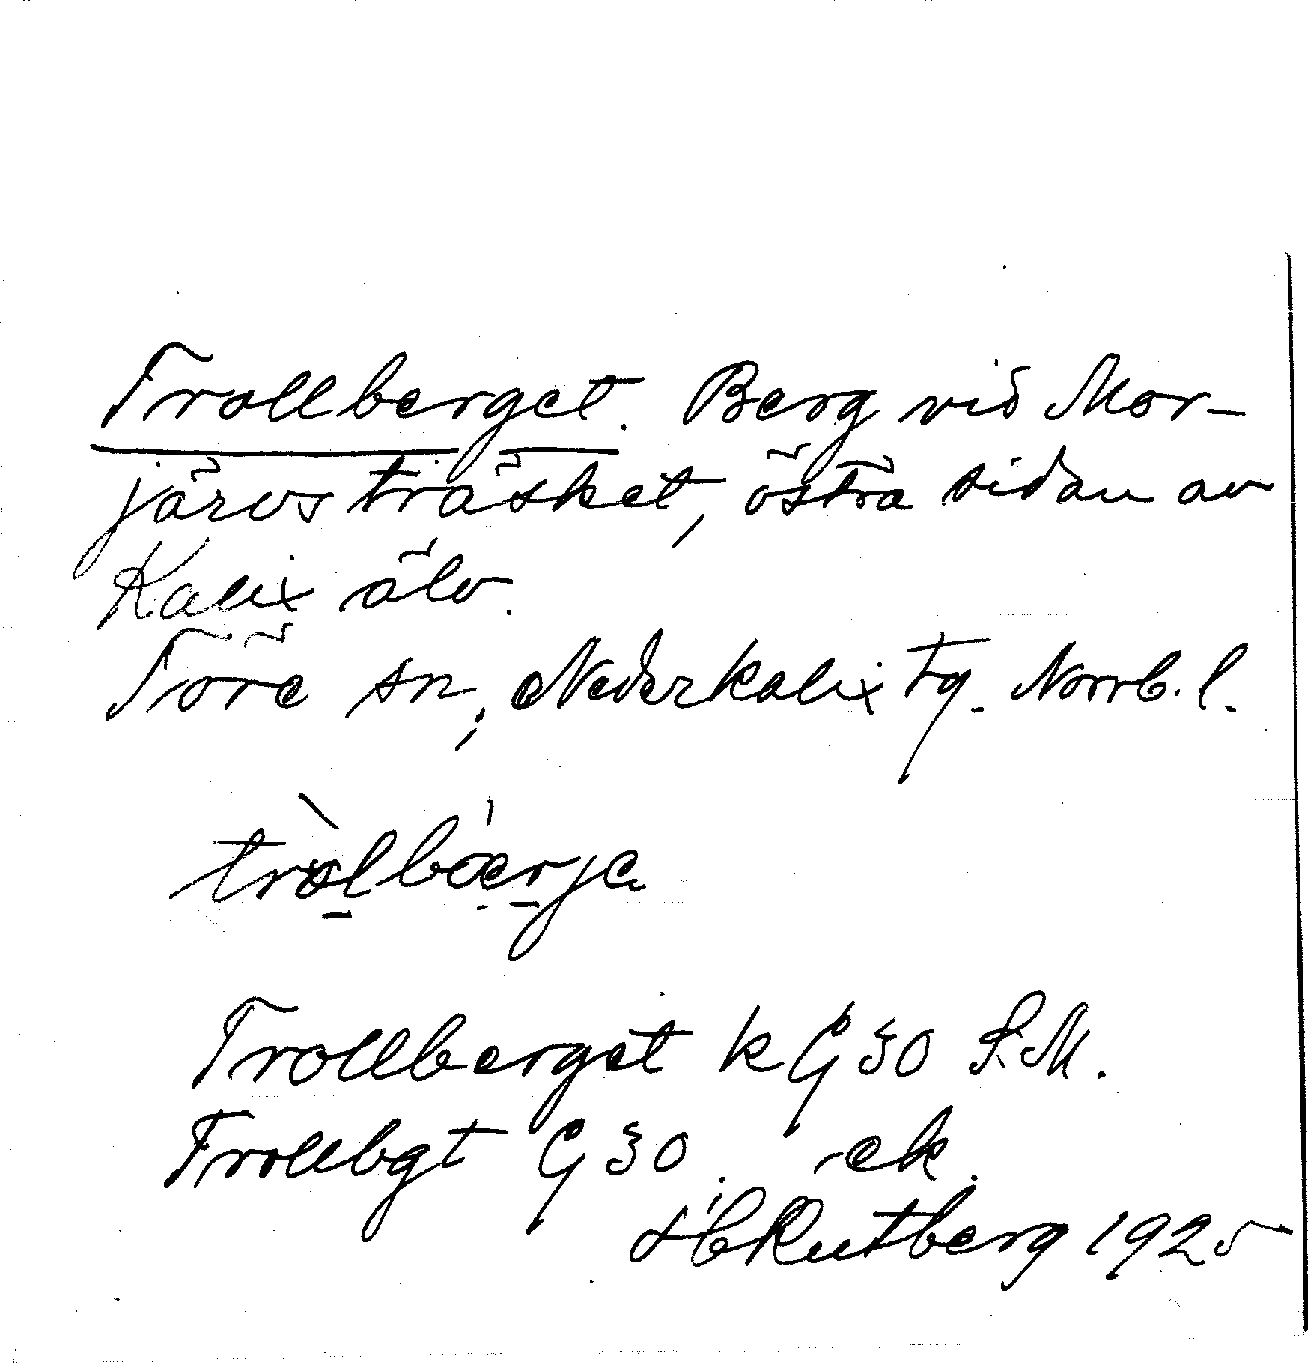 Trollberget. Berg vid Mor-
järvs träsket, östra sidan av
Kalix älv.
Töre sn, Nederkalix tg. Norrb. l.
tròlbáerja
Trollberget k G 30 S.M.
Trollbgt G 30. ek.
H C Rutberg 1925